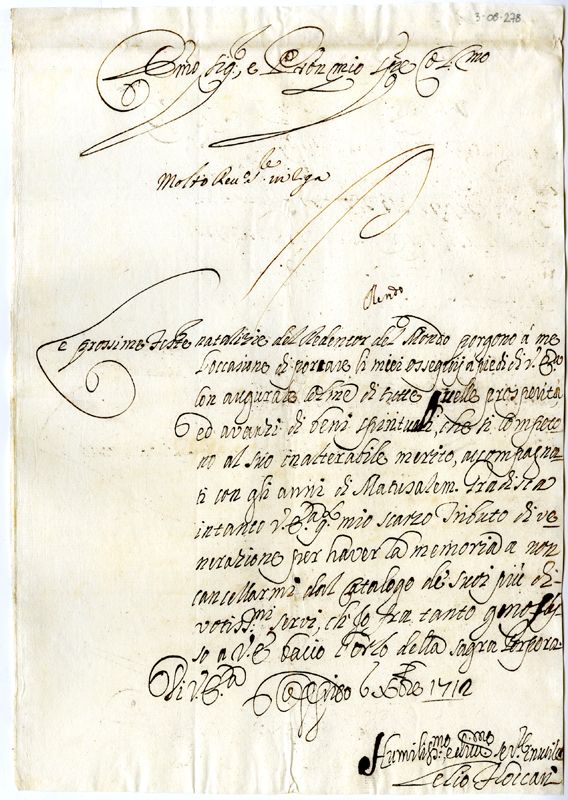 3-08-278
Emo Sig.r e Pron mio Sig.re Col.mo
Molto Reu.
Rendo
e prossime feste natalizie del Redentor del Mondo porgono à me
l'occasione di portare li miei ossequij a piedi di V. E.
con augurarle colme di tutte quelle prosperità,
ed avanzi di beni spirituali, che si compete
no al suo inalterabile merito, accompagna
ti con gli anni di Matusalem. Gradisca
intanto V. E. q.o mio scarzo tributo di ve
nerazione per haver la memoria a non
cancellarmi dal Catalogo de suoi più di
votiss.mi servi, ch'Io fra tanto genofles
so a V. E. bacio l'orlo della sagra Porpora.
Di V. E.
Xbre 1712
Humiliss.mo
Lelio